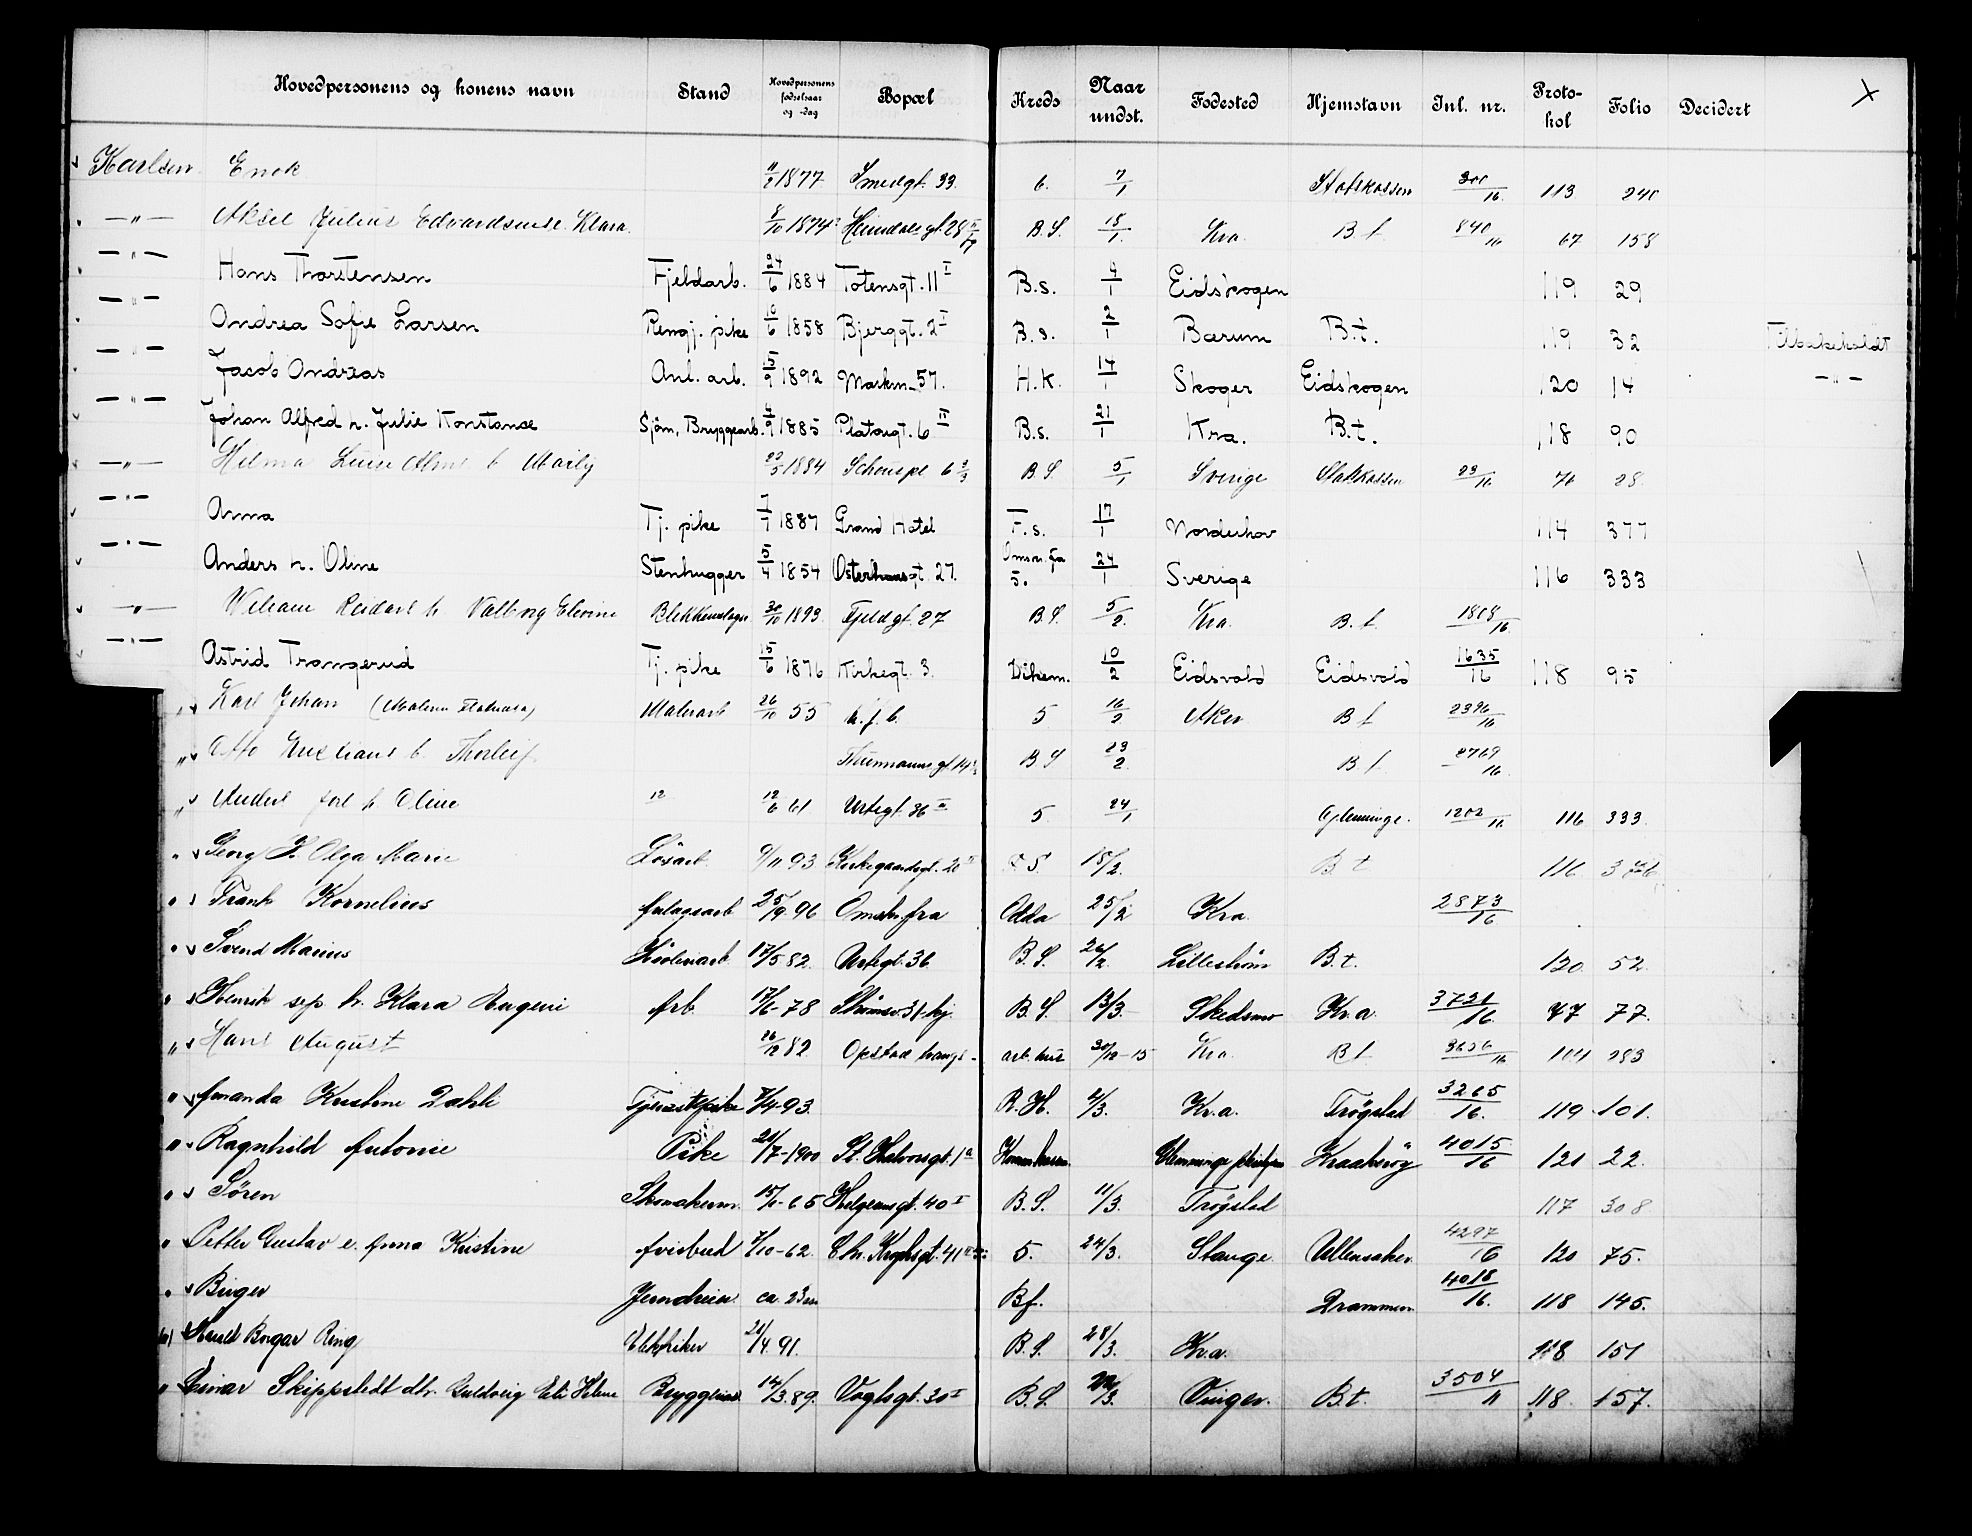 Hovedpersonens og konens navn Stand Hovedpersonens fødselsaar og -dag Bopæl Kreds Naar undst. Fødested Hjemstavn Inl. nr. Protokol Folio Decidert X
Karlsen Enok 11/2 1877 Smedgt. 33. 6. 7/1 Statskassen 300/16. 113 240
—"— Aksel Julius Edvardsen Klara. 8/10 1874 Heimdalsgt. 28 B.S. 18/1. Kra. B.t. 840/16 67 158
—"— Hans Thorstensen Fjeldarb. 24/6 1884 Totensgt. 11 I B.s. 4/1 Eidskogen 119 29
—"— Andrea Sofie Larsen Rengj. pike 10/6 1858 Bjerggt. 2 I B.s. 2/1 Bærum B.t. 119 32 Tilbakeholdt
—"— Jacob Andreas Anl. arb. 5/9 1892 Markvn. 57. H.K. 14/1 Skoger Eidskogen 120 14 —"—
—"— Johan Alfred h. Julie Konstance Sjøm, Bryggearb. 4/9 1885 Platousgt. 6 IV B.s. 21/1 Kra. B.t. 118 90
—"— Hilma b. Marly 1884 Schouspl 6 B.S. 5/1 Sverige Statskassen 23/16 70 28
—"— Anna Tj. pike 7/7 1887 Grand Hotel F.s. 17/1 Norderhov 114 377
—"— Anders h. Oline Stenhugger 5/4 1854 Osterhausgt. 27. Omsk. fa 5. 24/1 Sverige 116 333
—"— Reidar h Valborg Elevine Blikkenslager 30/10 1893 Fjeldgt. 27 B.S. 5/2. Kra. B.t. 1808/16
—"— Astrid Trangerud Tj. pike 15/6 1876 Kirkegt. 3. Dikem. 10/2 Eidsvold Eidsvold 1635/16 118 95
" Karl Johan Malerarb 26/10 55 h.f.b. 5 16/2 Aker B.t. 2396/16
" Otto Kristians b. Thorleif Thurmannsgt 14 B.S 23/2. B.t. 2769/16
" Anders h. Oline 12 12/6 61 Urtegt. 36 II 5. 24/1 Glemminge. 1202/16 116 333
" Georg F. Olga Marie Løsarb. 9/11 93 Kirkegaardsgt. 20 II 15/2. B.t 116 376
" Frank Kornelius anlagsarb 25/9 96 Omsk. fra Odda 25/2 Kra. 2873/16
" Svend Marius 17/5 82 Urtegt. 36 B.S. 26/2. Lillestrøm B.t. 120 52
" Henrik sep. h. Klara Eugenie Arb. 78 Strømsv. 31. kj. B.S. 13/3. Skedsmo Kr.a. 3721/16. 77
" Hans August 82 Opstad tvangs- arb.hus 30/10-15 Kra. B.t. 3636/16 104 283
" Amanda Kristine Dahli Tjenestepike 7/4-93. R.H. 2/3. Kr.a. Trøgstad 3265/16. 119 101.
" Ragnhild Antonie Pike 21/7-1900 St. Halvorsgt. 1a Glemminge Kraakerøy 4015/16 121 22.
" Søren Skomakerm. 65 Helgesensgt. 40 I B.S. 11/3. Trøgstad 117 308
" Petter Gustav e. Anna Kristine Avisbud 7/10-62. Chr. Kroghsgt. 41 5. 24/3. Stange Ullensaker 4297/16 120 75.
" Birger Jerndreier ca. 23 Bf. Drammen 4018/16. 118 145.
" Borgar Ring Elektriker 21/4 91. B.S. 28/3. Kr.a. 118 151
" Einar Skippstedt dtr. Guldveig Eli Helene Bryggeriarb. 14/3. 89. Vogtsgt. 30 I B.S. 22/3. Vinger. B.t. 3504/11 118. 157.